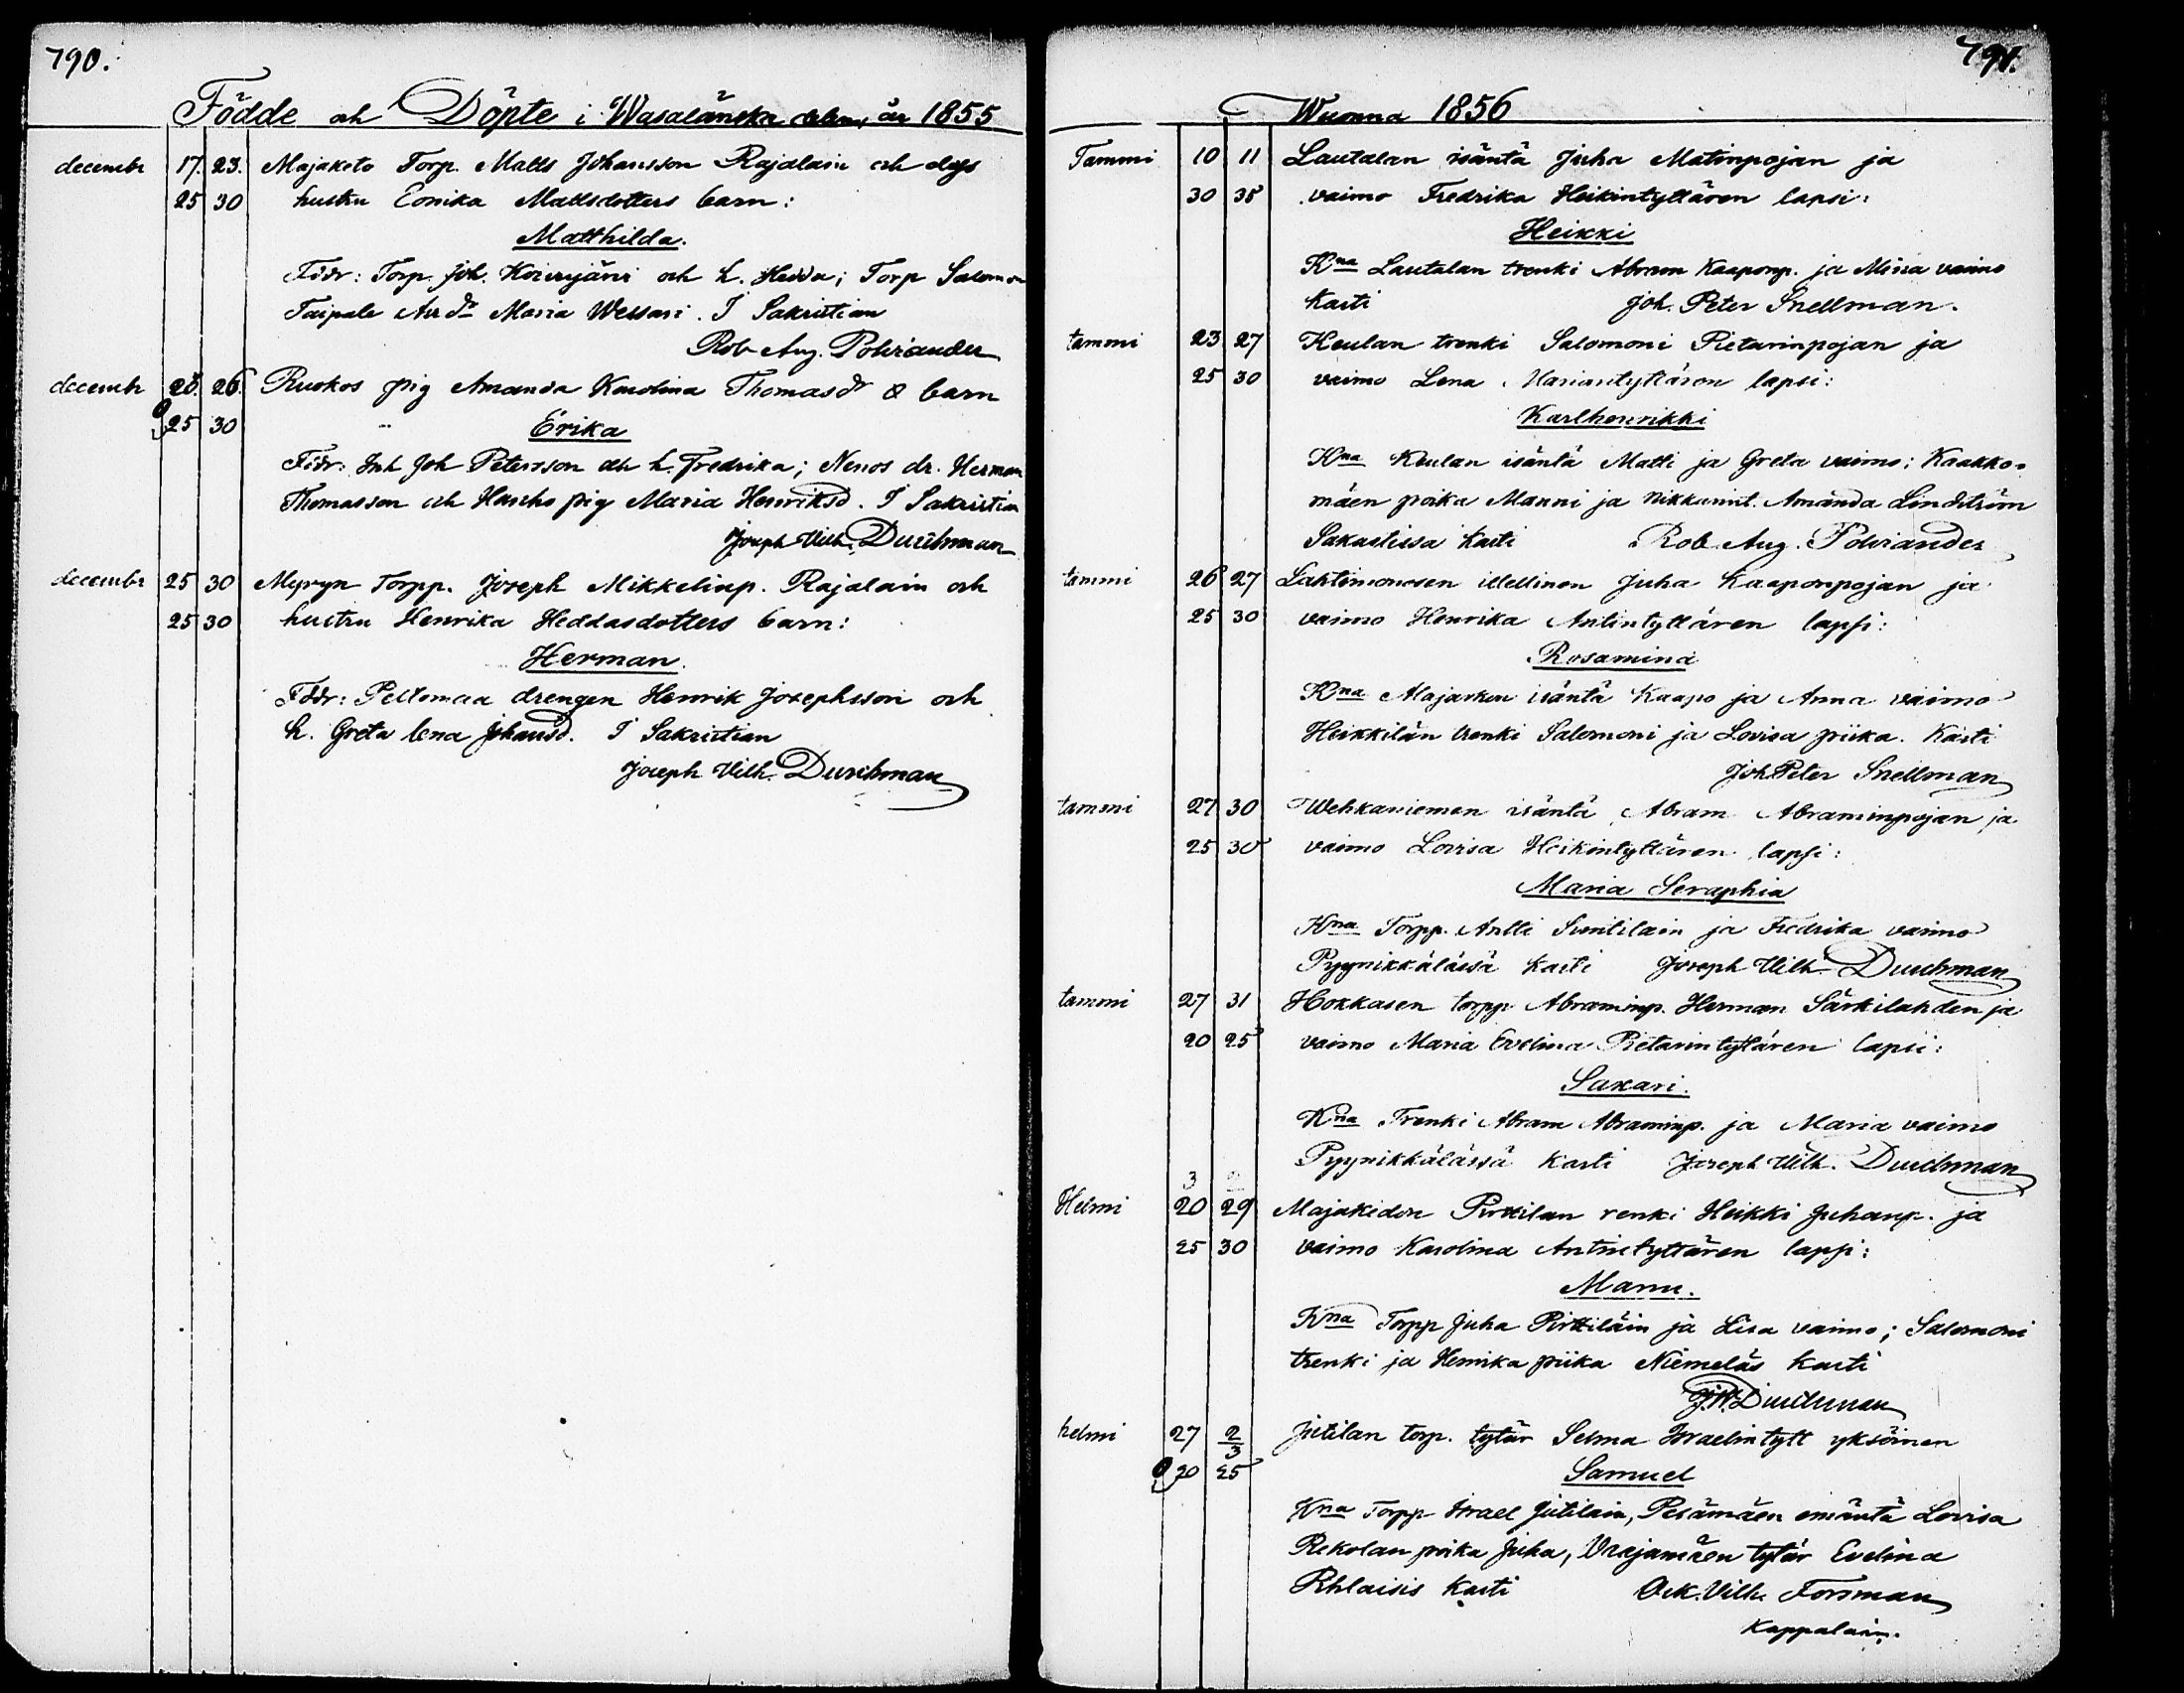 790.
Födde och Döpte i Wasalänska delen, år 1855
decembr 17. 23. Majaketo Torp. Matts Johansson Rajalain och dess
25 30 hustru Eonika Mattsdotters barn:
Matthilda.
Fddr: Torp. Joh. Koivujärvi och h. Hedda; Torp Salomon
Taipale Maria Wessari. I Sakristian
Rob. Aug. Polviander
decembr 25. 26. Ruokos pig Amanda Karolina Thomasdr barn
25 30 Erika
Fddr: Inh Joh Petersson och h. Fredrika; Nenos dr. Herman
Thomasson och Hanho pig Maria Henriksd. I Sakristian
Joseph Vilh. Durchman
decembr 25 30 Myryn Torpp. Joseph Mikkelinp. Rajalain och
25 30 hustru Henrika Heddasdotters barn:
Herman.
Fddr: Peltomaa drengen Henrik Josephsson och
h. Greta lena Johansd. I Sakristian
Joseph Vilh. Durchman
791.
Wuonna 1856
Tammi 10 11 Lautalan isäntä Juha Matinpojan ja
30 35 vaimo Fredrika Heikintyttären lapsi:
Heikki
Kna Lautalan trenki Abram Kaaponp. ja Miina vaimo
Kasti Joh. Peter Snellman.
tammi 23 27 Keulan trenki Salomoni Pietarinpojan ja
25 30 vaimo Lena Mariantyttären lapsi:
Karlhenrikki
Kna Keulan isäntä Matti ja Greta vaimo; Kaakko-
mäen poika Manni ja nikkarint. Amanda Lindström
Sakastissa kasti Rob. Aug. Polviander
tammi 26 27 Lahtimonosen itellinen Juha Kaaponpojan ja
25 30 vaimo Henrika Antintyttären lapsi:
Rosamina
Kna Majasken isäntä Kaapo ja Anna vaimo
Heikkilän trenki Salomoni ja Lovisa piika. Kasti
Joh Peter Snellman
tammi 27 30 Wehkaniemen isäntä Abram Abraminpojan ja
25 30 vaimo Lovisa Heikintyttären lapsi:
Maria Seraphia
Kna Torpp. Antti Suntilain ja Fredrika vaimo
Pyynikkälässä kasti Joseph Vilh. Durchman
tammi 27 31 Hokkasen torpp Abraminp. Herman Särkilahden ja
20 25 vaimo Maria Evelina Pietarintyttären lapsi:
Sakari.
Kna Trenki Abram Abraminp. ja Maria vaimo
Pyynikkälässä kasti Joseph Vilh. Durchman
3
Helmi 20 29 Majakedon Pirttilan renki Heikki Juhanp. ja
25 30 vaimo Karolina Antintyttären lapsi:
Manu.
Kna Torpp Juha Pirttiläin ja Lisa vaimo; Salomoni
trenki ja Henrika piika Niemeläs kasti
J.W. Durchman
helmi 27 2/3 Jutilan torp. tytär Selma Israelintytt yksöinen
20 25 Samuel
Kna Torpp Israel Jutilain, Pesämäen emäntä Lovisa
Rekolan poika Juha, Vuajamäen tytär Evelina
Rhlaisis kasti Osk. Vilh. Forsman
Kappalain.